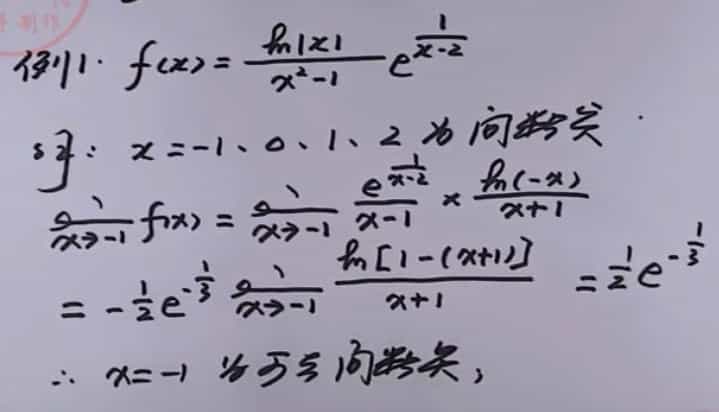 例1. f(x) = \frac{ln|x|}{x²-1} e^{\frac{1}{x-2}}
解: x = -1、0、1、2 为间断点.
\lim_{x→-1} f(x) = \lim_{x→-1} \frac{e^{\frac{1}{x-2}}}{x-1} × \frac{ln(-x)}{x+1}
= -\frac{1}{2} e^{-\frac{1}{3}} \lim_{x→-1} \frac{ln[1-(x+1)]}{x+1} = \frac{1}{2} e^{-\frac{1}{3}}
∴ x = -1 为可去间断点;